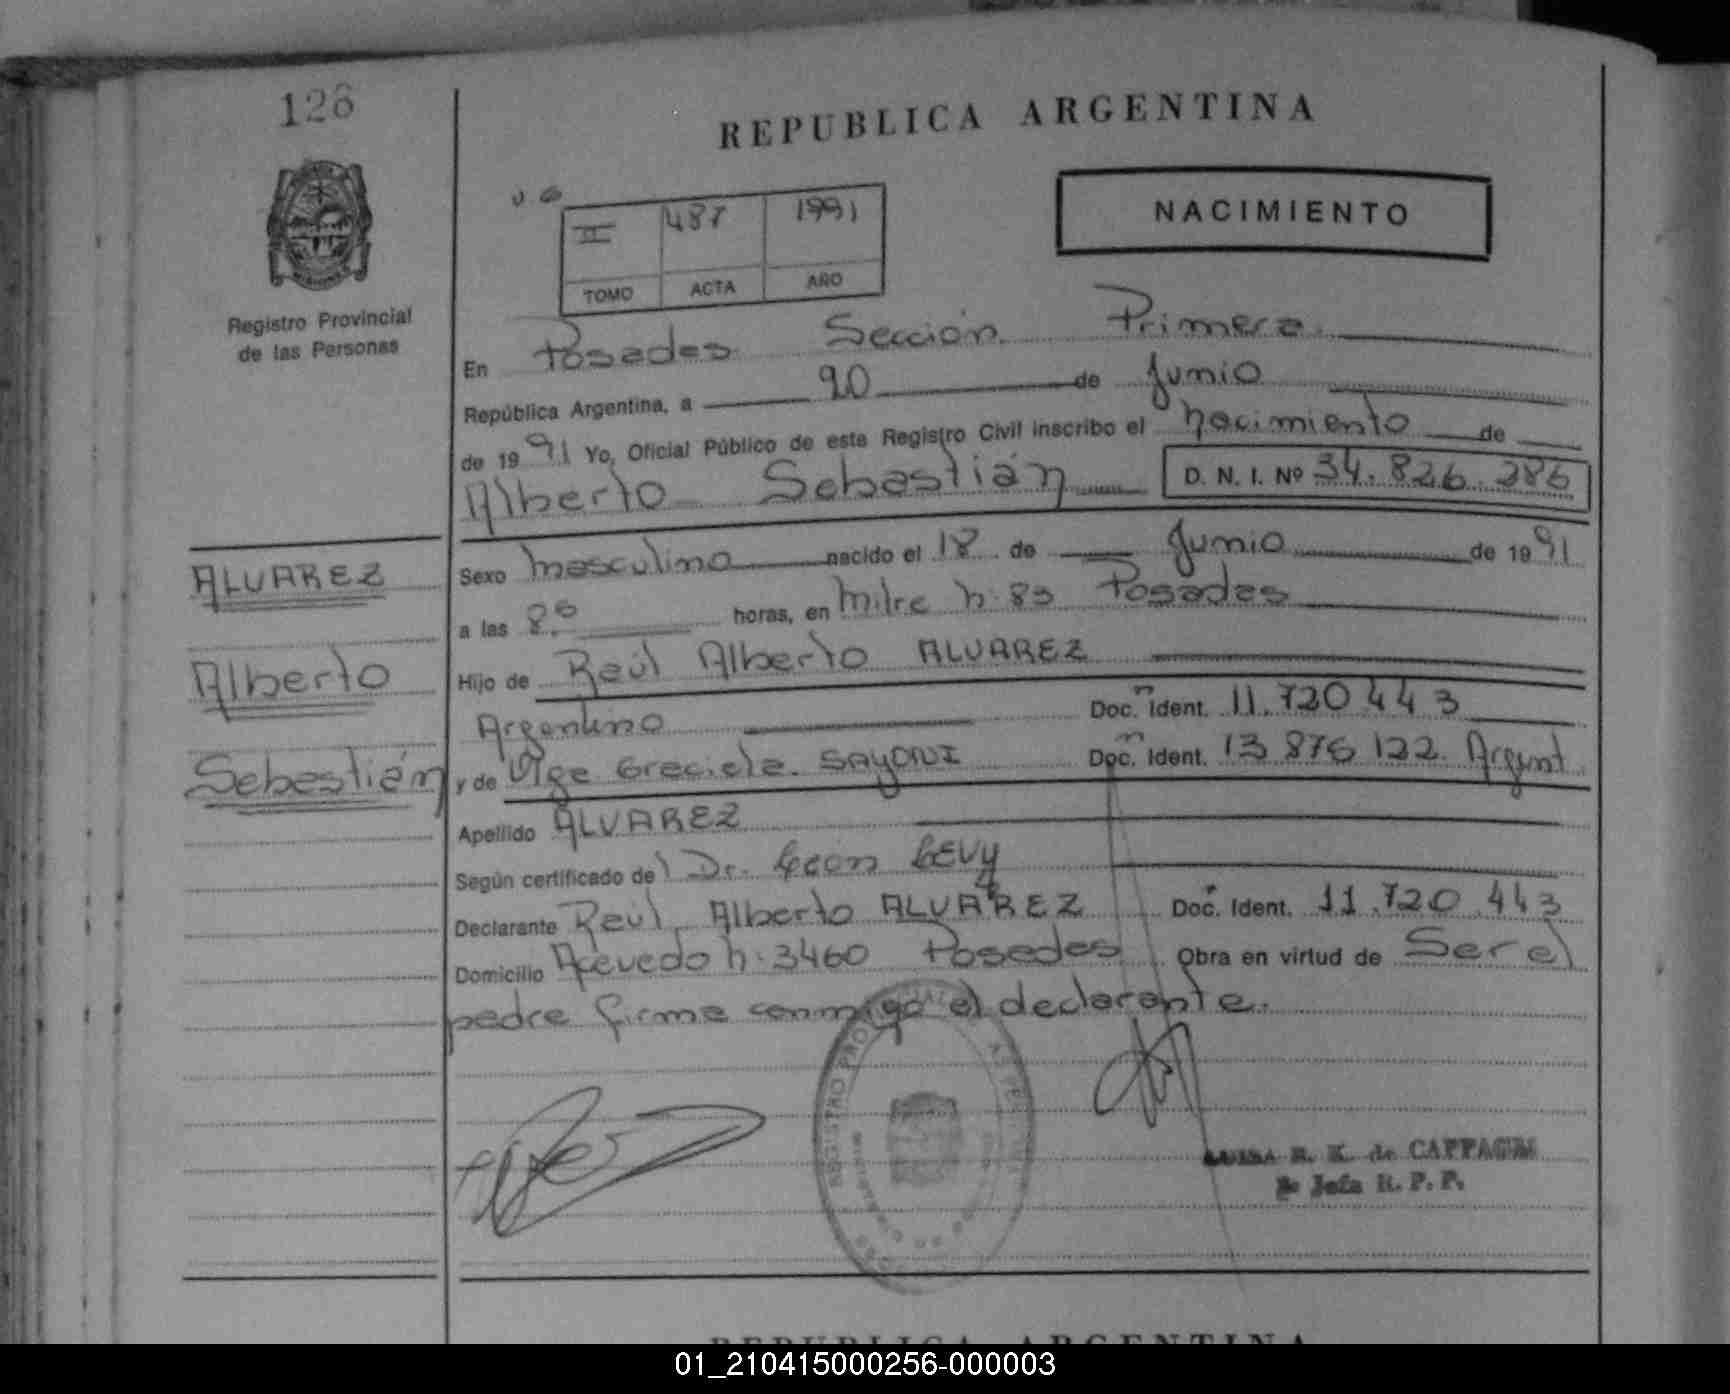 126
REPUBLICA ARGENTINA
II 487 1991
TOMO ACTA AÑO
NACIMIENTO
Registro Provincial
de las Personas
En Posadas Sección Primera
República Argentina, a 20 de Junio
de 1991 Yo, Oficial Público de este Registro Civil inscribo el nacimiento de
Alberto Sebastián D. N. I. Nº 34.826.286
ALVAREZ
Alberto
Sebastián
Sexo masculino nacido el 18 de Junio de 1991
a las 8 horas, en Mitre n: 83 Posadas
Hijo de Raúl Alberto ALVAREZ
Argentino Doc. Ident. 11.720.443
y de Olga Graciela SAYONI Doc. Ident. 13.876.122 Argent
Apellido ALVAREZ
Según certificado del Dr. León LEVY
Declarante Raúl Alberto ALVAREZ Doc. Ident. 11.720.443
Domicilio Acevedo n: 3460 Posadas Obra en virtud de Ser el
padre firma conmigo el declarante.
R. K. de
Jefa R. P. P.
REPUBLICA ARGENTINA
01_210415000256-000003